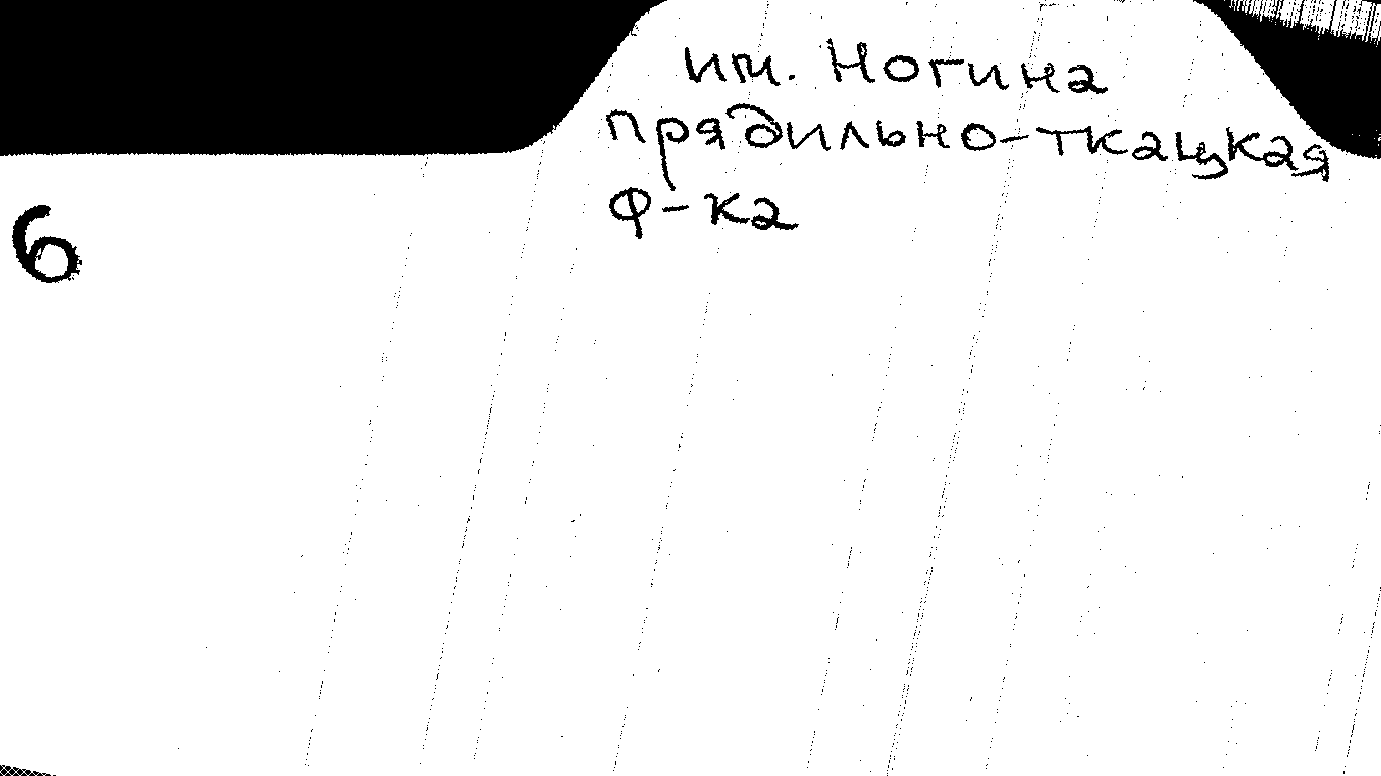 им. Ногина
прядильно-ткацкая
ф-ка
6